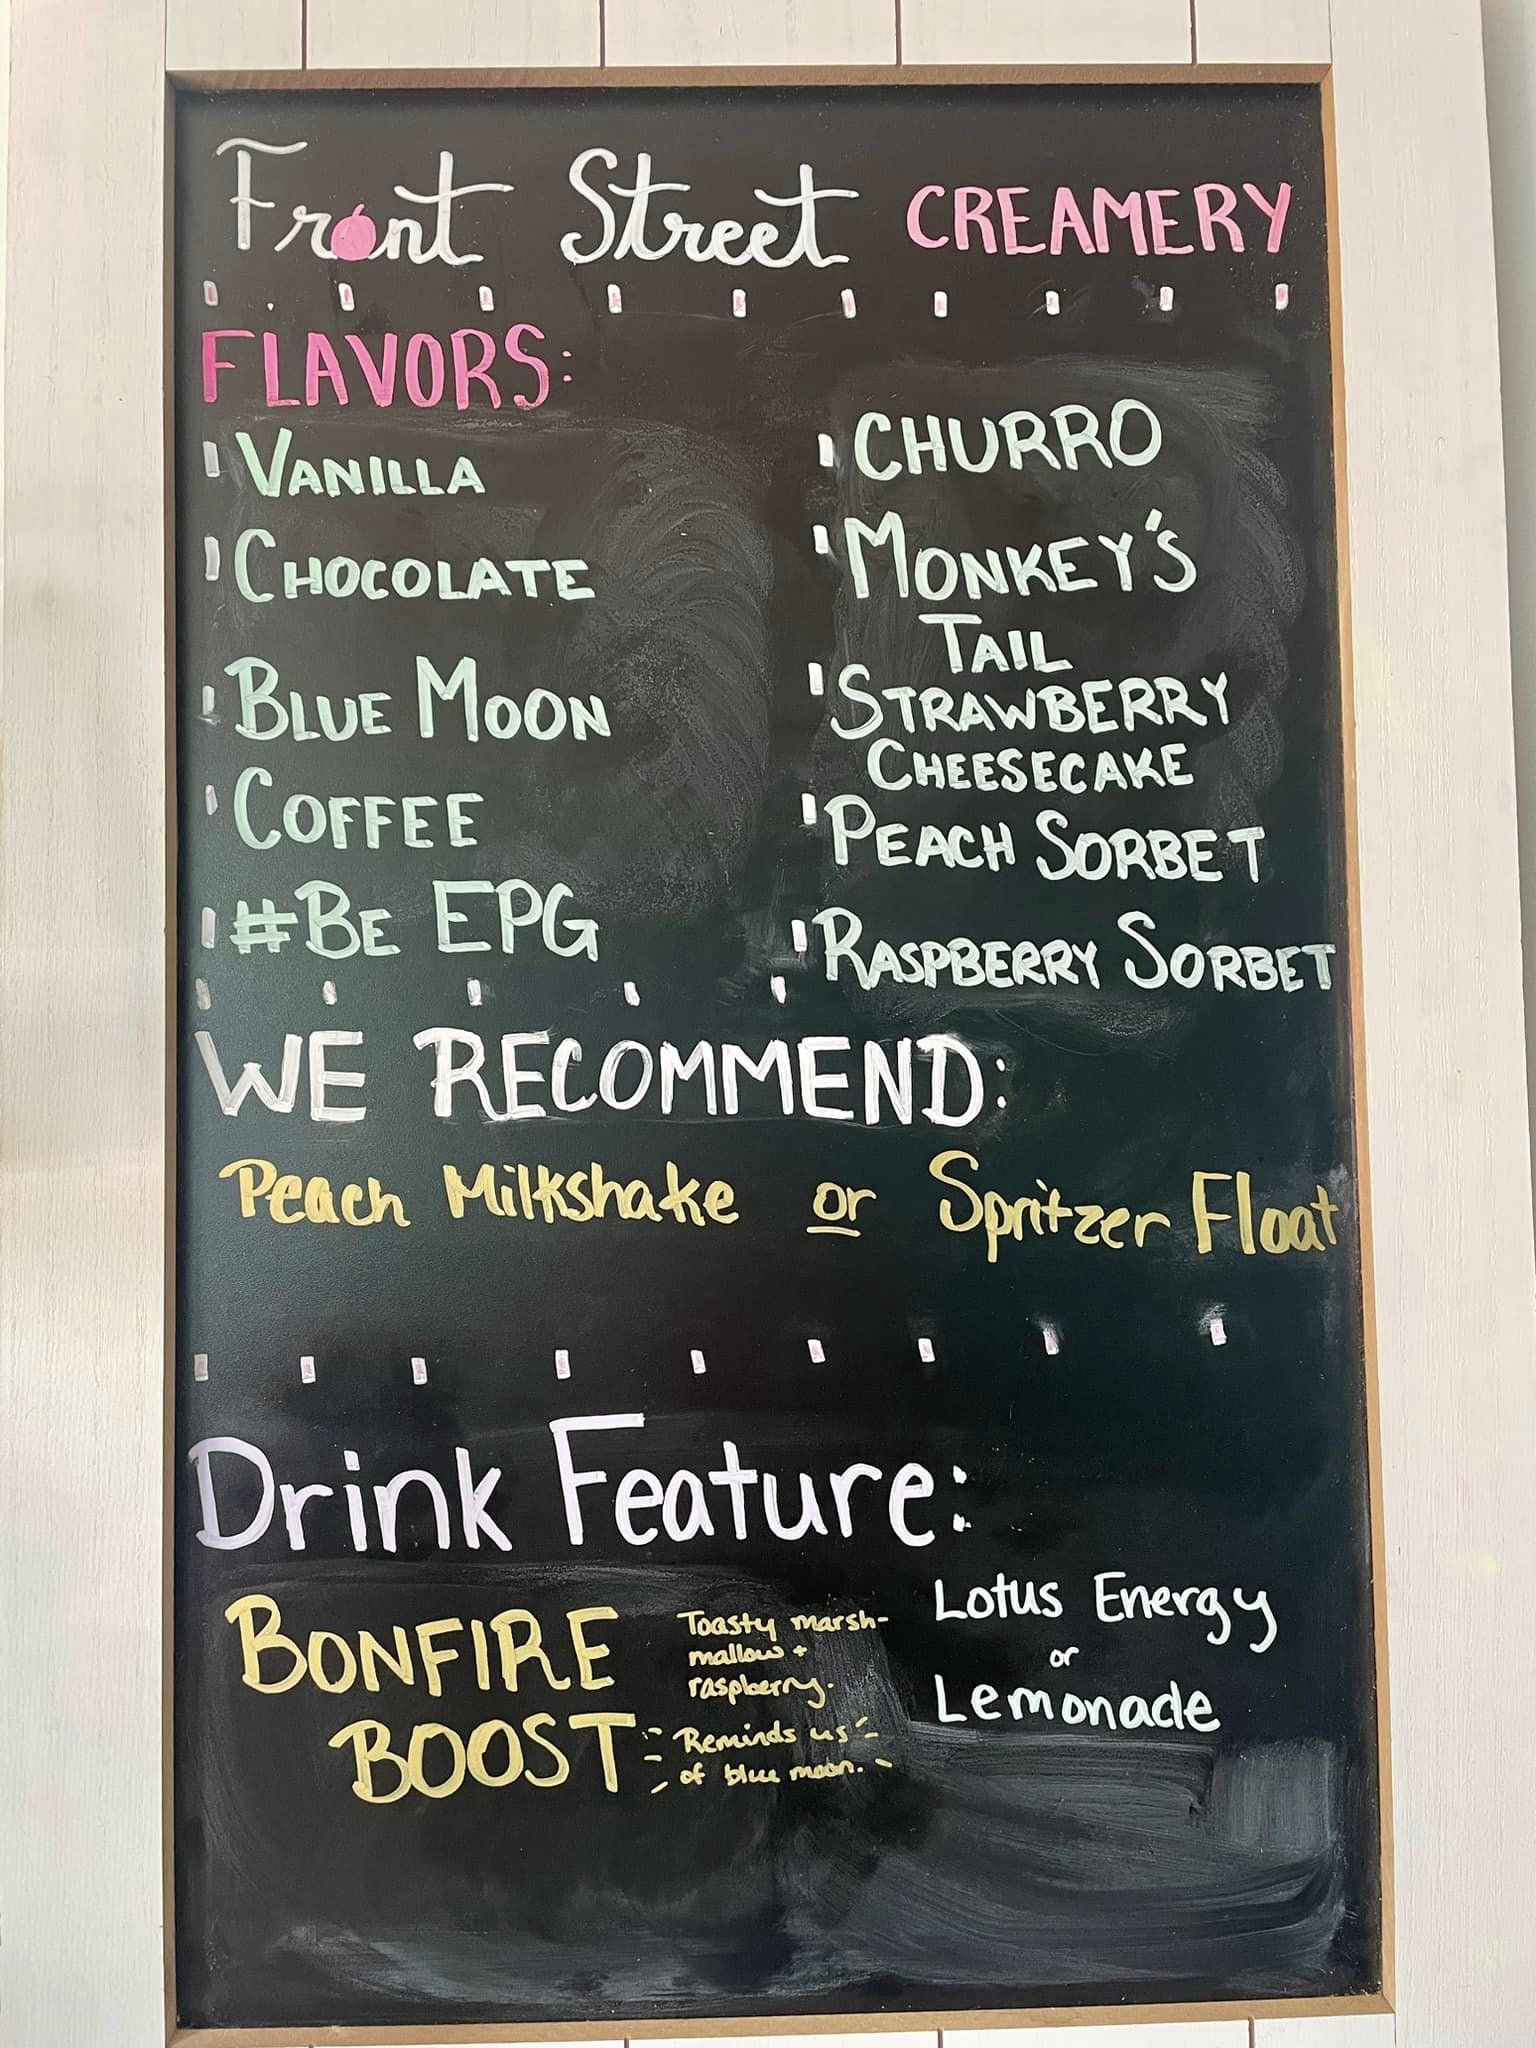 Front Street CREAMERY
FLAVORS:
VANILLA
CHOCOLATE
BLUE MOON
COFFEE
#BE EPG
CHURRO
MONKEY'S
TAIL
STRAWBERRY
CHEESECAKE
PEACH SORBET
RASPBERRY SORBET
WE RECOMMEND:
Peach Milkshake or Spritzer Float
Drink Feature:
BONFIRE
BOOST
Toasty marsh-
mallow +
raspberry.
Reminds us
of blue moon.
Lotus Energy
or
Lemonade